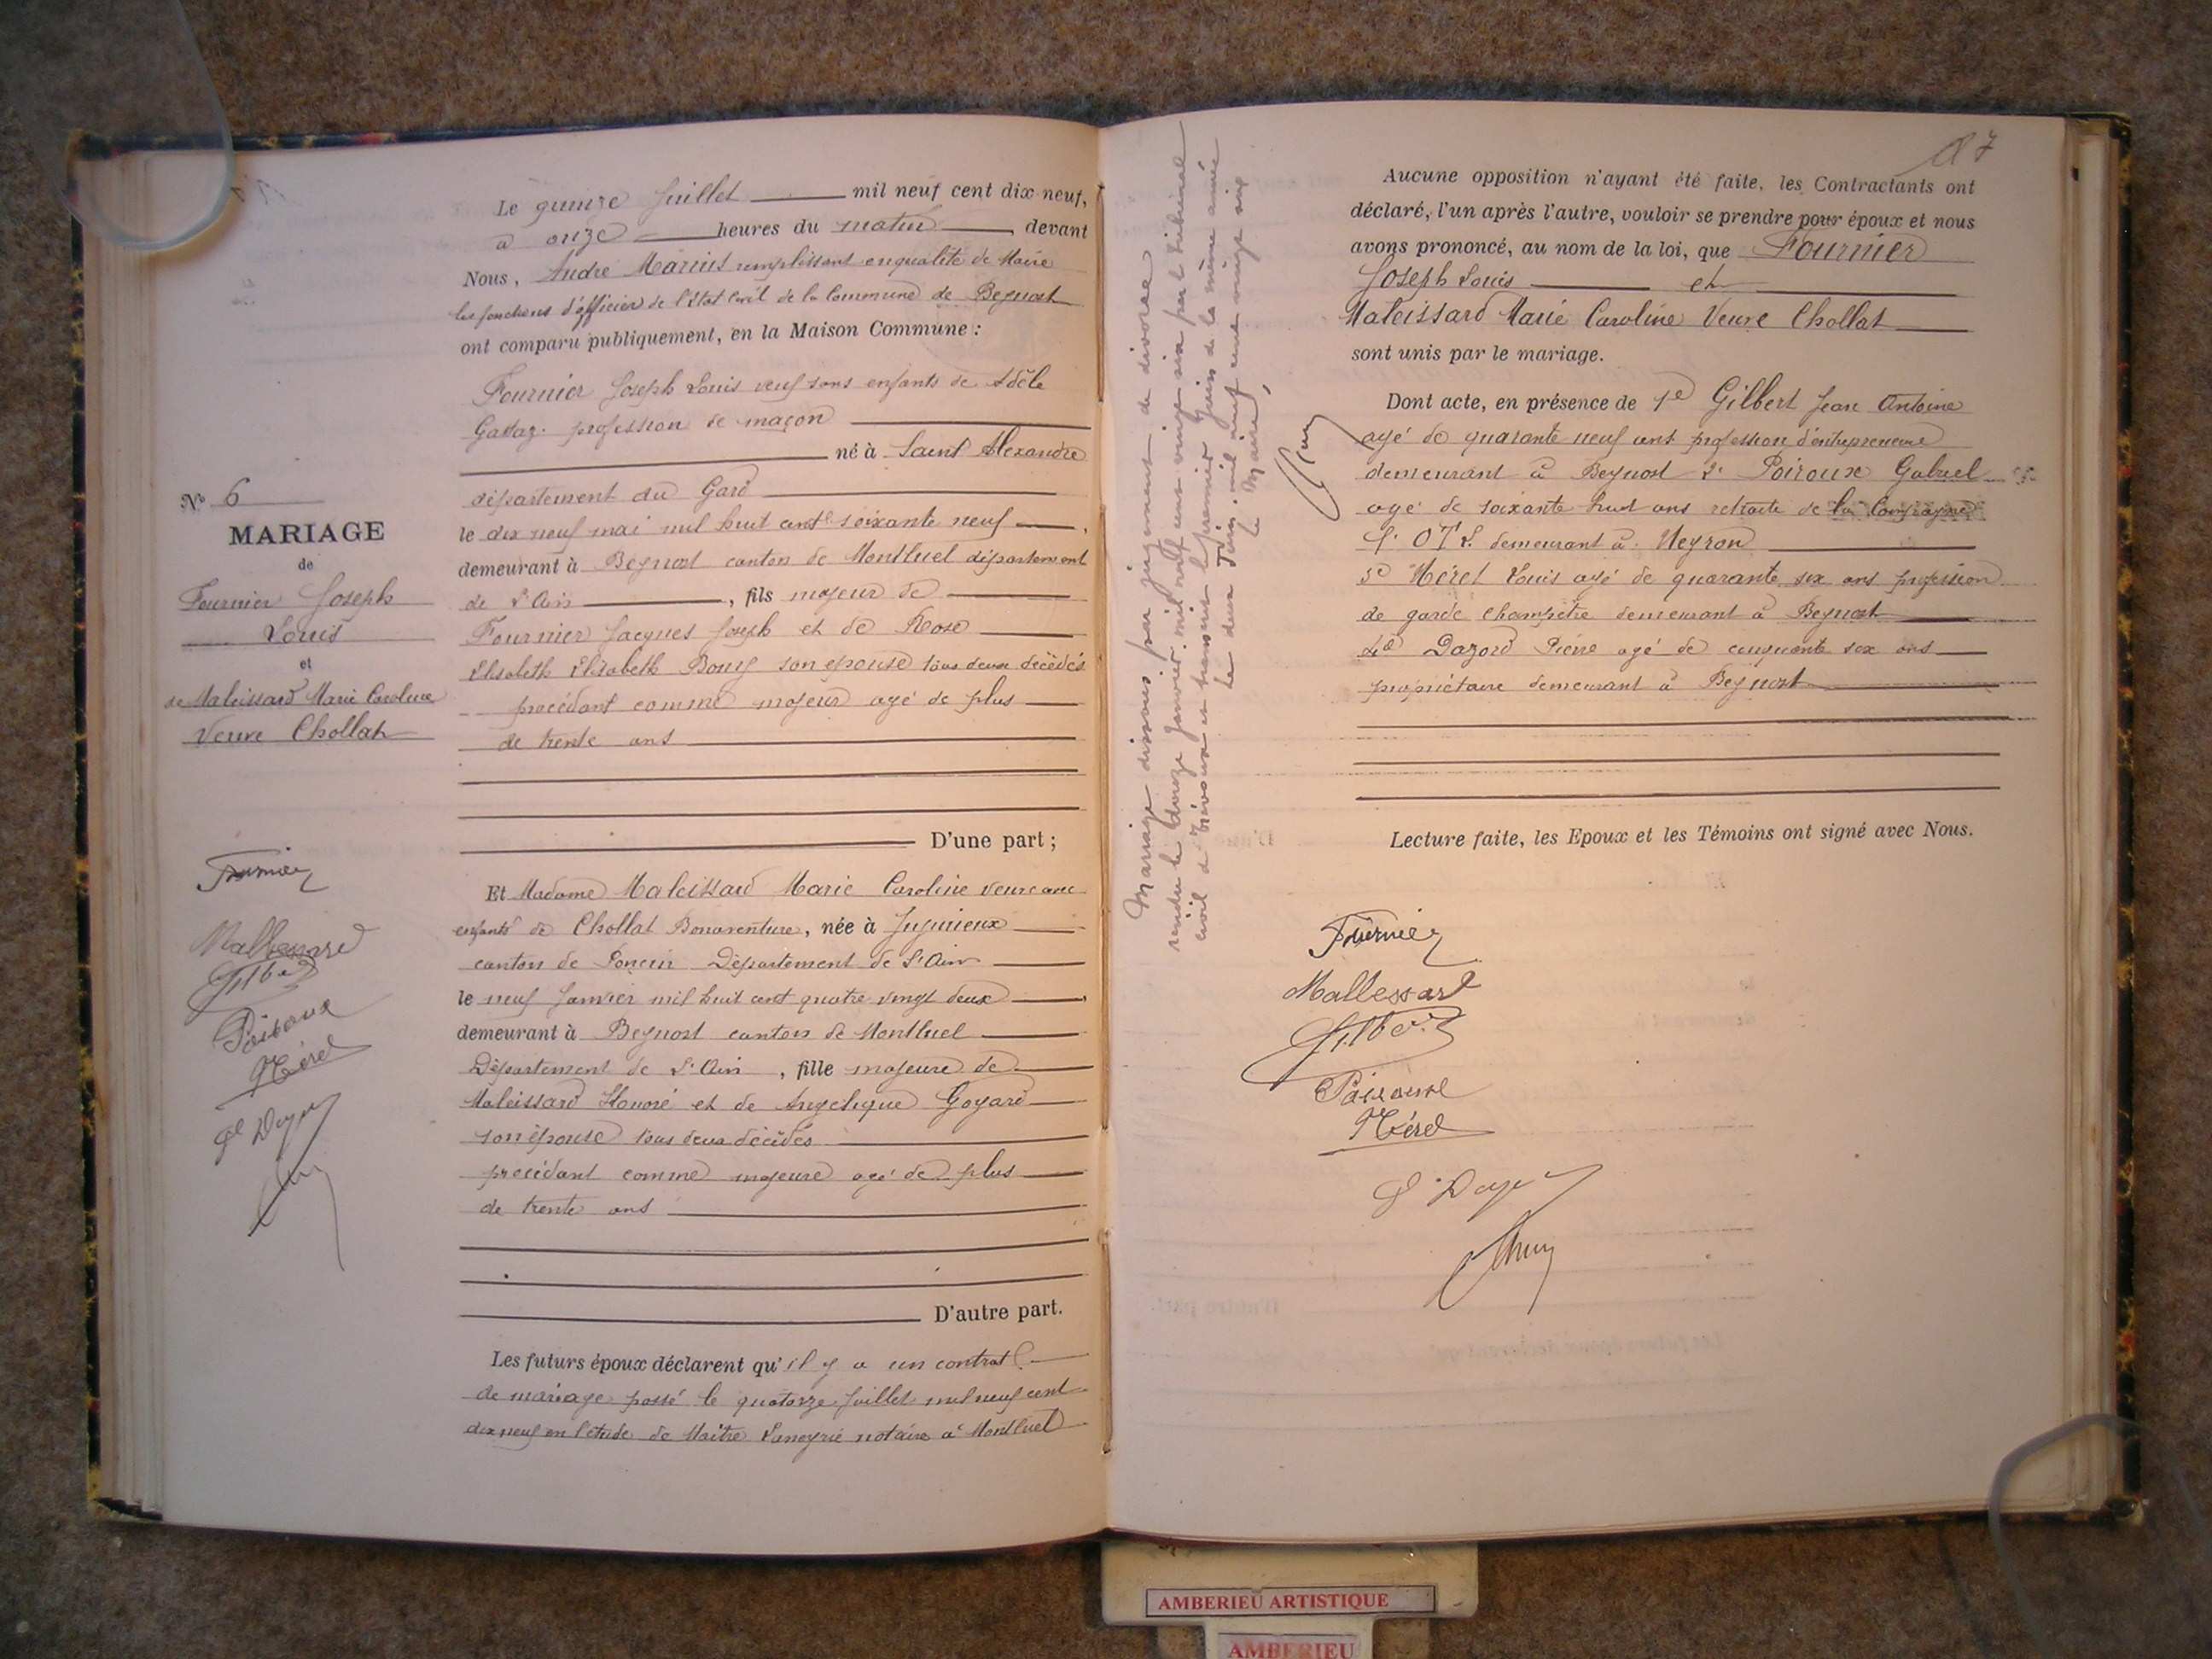 Le quinze Juillet mil neuf cent dix neuf,
à onze heures du matin, devant
Nous, André Marius remplissant en qualité de Maire
les fonctions d'officier de l'état Civil de la Commune de Beynost
ont comparu publiquement, en la Maison Commune :
Fournier Joseph Louis veuf sans enfants de Adèle
profession de maçon
né à Saint Alexandre
département du Gard
le dix neuf mai mil huit cent soixante neuf,
demeurant à Beynost canton de Montluel département
de l'Ain, fils majeur de
Fournier Jacques Joseph et de Rose
Elisabeth Elisabeth son épouse tous deux décédés
procédant comme majeur agé de plus
de trente ans
D'une part ;
Et Madame Maleissard Marie Caroline veuve avec
enfants de Chollat Bonaventure, née à Jujurieux
canton de Poncin Département de l'Ain
le neuf Janvier mil huit cent quatre vingt deux,
demeurant à Beynost canton de Montluel
Département de l'Ain, fille majeure de
Maleissard Honoré et de Angélique Goyard
son épouse tous deux décédés
procédant comme majeure agé de plus
de trente ans
D'autre part.
Les futurs époux déclarent qu'il y a un contrat
de mariage passé le quatorze Juillet mil neuf cent
dix neuf en l'étude de Maître Laneyrie notaire à Montluel
N° 6
MARIAGE
de
Fournier Joseph
Louis
et
de Maleissard Marie Caroline
Veuve Chollat
Fournier
Mallessard
Gilbert
Poiroux
Mérel
Mariage dissous par jugement de divorce
rendu le douze Janvier mil neuf cent vingt six par le tribunal
civil de Trévoux et transcrit le premier Juin de la même année
Le deux Juin mil neuf cent vingt six
Le Maire,
87
Aucune opposition n'ayant été faite, les Contractants ont
déclaré, l'un après l'autre, vouloir se prendre pour époux et nous
avons prononcé, au nom de la loi, que Fournier
Joseph Louis et
Maleissard Marie Caroline Veuve Chollat
sont unis par le mariage.
Dont acte, en présence de 1e Gilbert Jean Antoine
agé de quarante neuf ans profession d'entrepreneur
demeurant à Beynost 2e Poiroux Gabriel
agé de soixante huit ans retraité de la Compagnie
O T L demeurant à Neyron
3e Mérel Louis agé de quarante six ans profession
de garde champêtre demeurant à Beynost
4e Dazord Pierre agé de cinquante six ans
propriétaire demeurant à Beynost
Lecture faite, les Epoux et les Témoins ont signé avec Nous.
Fournier
Mallessard
Gilbert
Poiroux
Mérel
AMBERIEU ARTISTIQUE
AMBERIEU